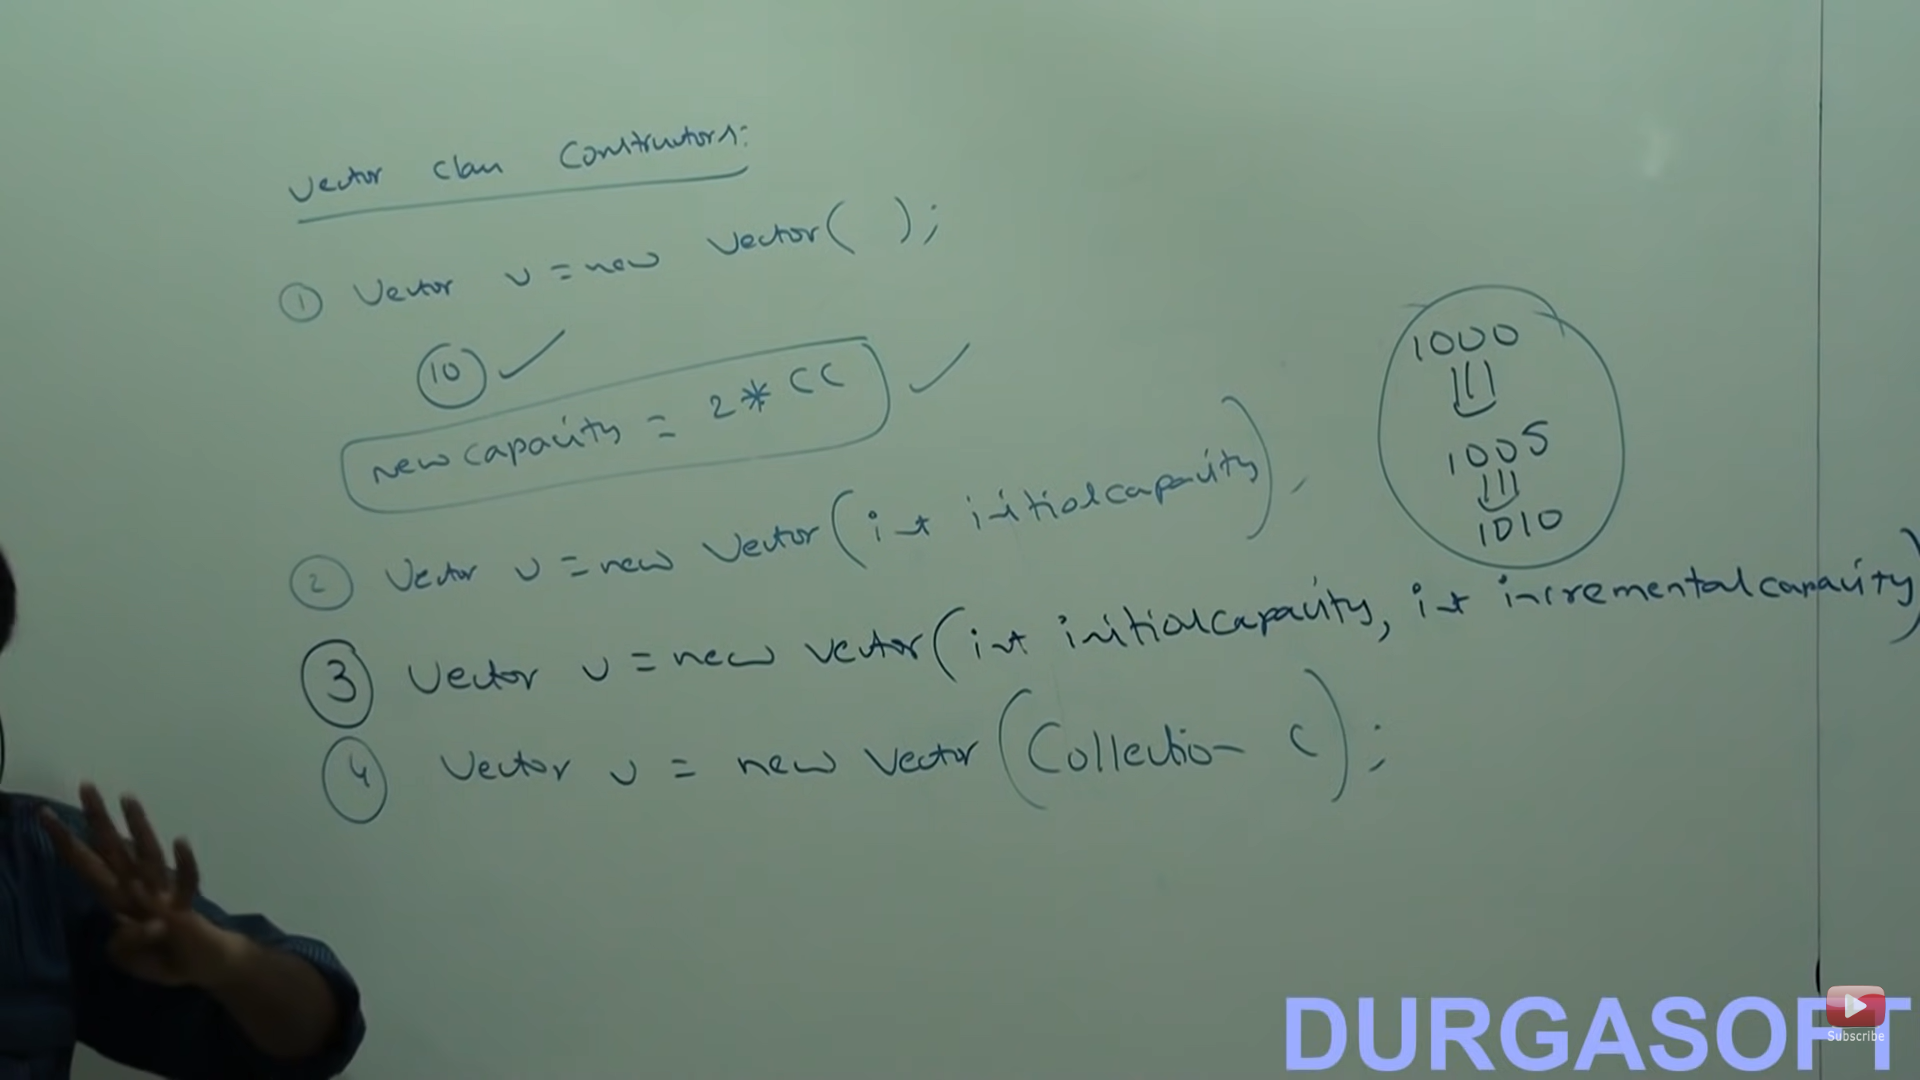 Vector class Constructors:
① Vector v = new Vector( );
10 ✓
newcapacity = 2 * CC ✓
② Vector v = new Vector(int initialcapacity);
③ Vector v = new Vector(int initialcapacity, int incrementalcapacity)
④ Vector v = new Vector(Collection c);
1000
1005
1010
DURGASOFT
Subscribe